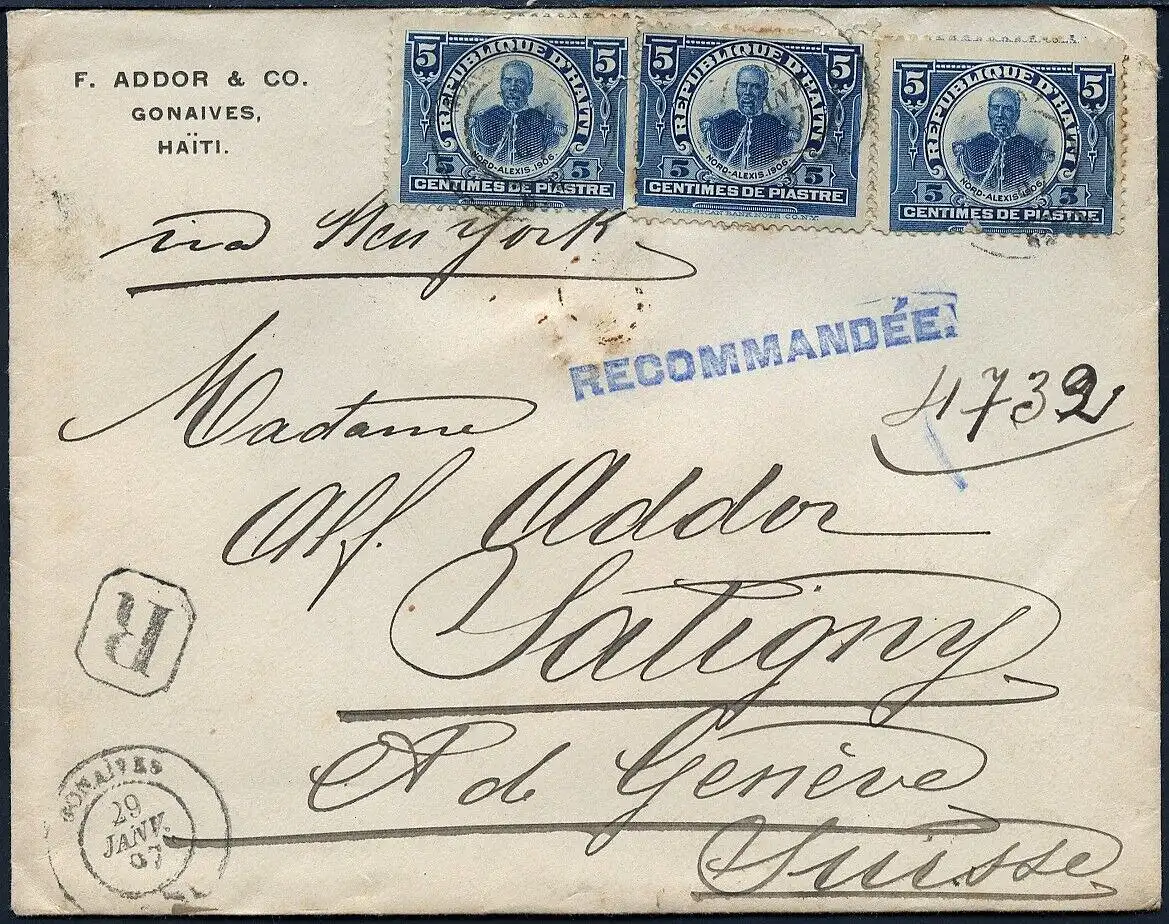 F. ADDOR & CO.
GONAIVES,
HAÏTI.
5 REPUBLIQUE D'HAÏTI 5
NORD-ALEXIS.1906.
5 5
CENTIMES DE PIASTRE
5 REPUBLIQUE D'HAÏTI 5
NORD-ALEXIS.1906.
5 5
CENTIMES DE PIASTRE
AMERICAN BANK NOTE CO.N.Y.
5 REPUBLIQUE D'HAÏTI 5
NORD-ALEXIS.1906.
5 5
CENTIMES DE PIASTRE
via New York
RECOMMANDÉE.
4732
Madame
Alf. Addor
Satigny
R
Ct de Genève
Suisse
GONAÏVES
29
JANV.
07